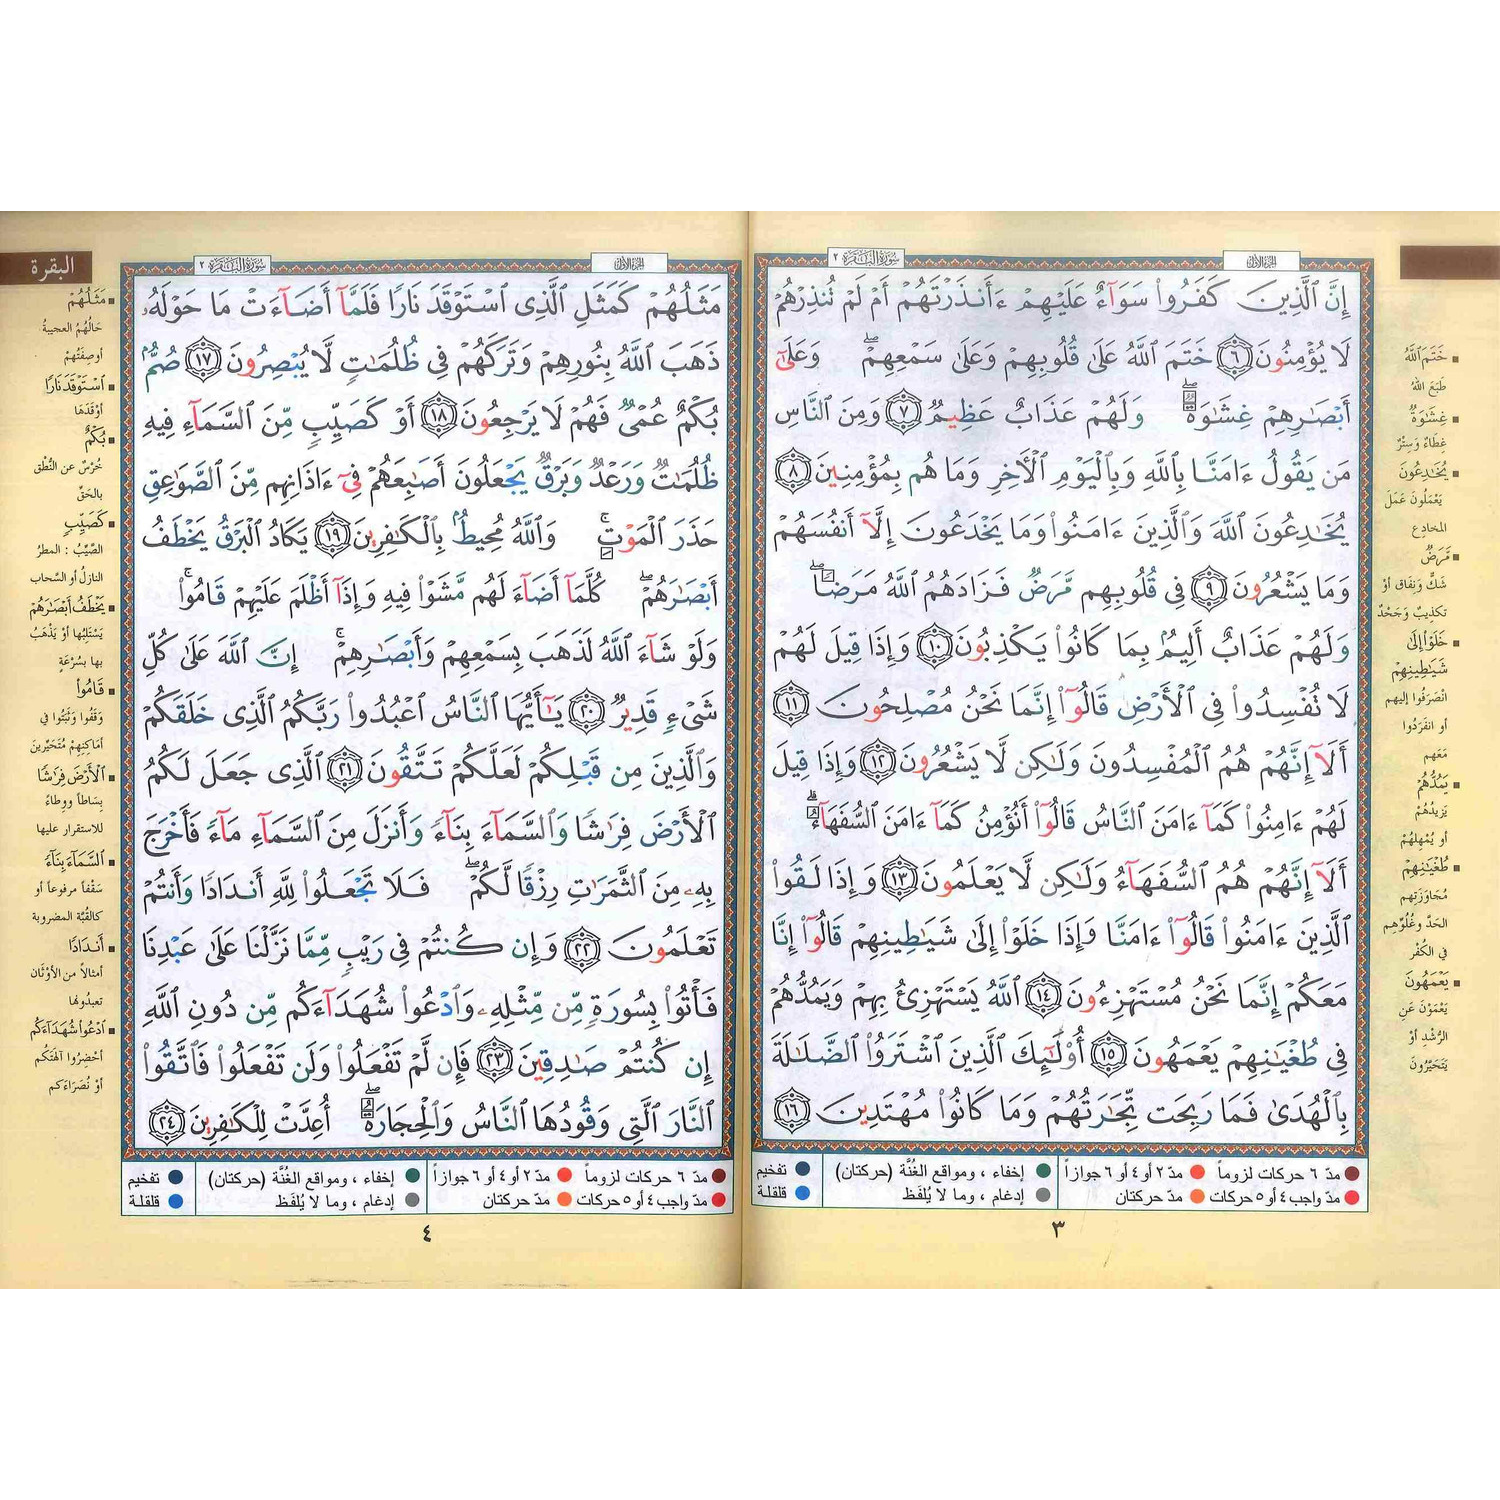 الجزء الأول
سورة البقرة ٢
إِنَّ ٱلَّذِينَ كَفَرُوا۟ سَوَآءٌ عَلَيْهِمْ ءَأَنذَرْتَهُمْ أَمْ لَمْ تُنذِرْهُمْ
لَا يُؤْمِنُونَ ٦ خَتَمَ ٱللَّهُ عَلَىٰ قُلُوبِهِمْ وَعَلَىٰ سَمْعِهِمْ ۖ وَعَلَىٰٓ
أَبْصَـٰرِهِمْ غِشَـٰوَةٌ ۖ وَلَهُمْ عَذَابٌ عَظِيمٌ ٧ وَمِنَ ٱلنَّاسِ
مَن يَقُولُ ءَامَنَّا بِٱللَّهِ وَبِٱلْيَوْمِ ٱلْـَٔاخِرِ وَمَا هُم بِمُؤْمِنِينَ ٨
يُخَـٰدِعُونَ ٱللَّهَ وَٱلَّذِينَ ءَامَنُوا۟ وَمَا يَخْدَعُونَ إِلَّآ أَنفُسَهُمْ
وَمَا يَشْعُرُونَ ٩ فِى قُلُوبِهِم مَّرَضٌ فَزَادَهُمُ ٱللَّهُ مَرَضًا ۖ
وَلَهُمْ عَذَابٌ أَلِيمٌۢ بِمَا كَانُوا۟ يَكْذِبُونَ ١٠ وَإِذَا قِيلَ لَهُمْ
لَا تُفْسِدُوا۟ فِى ٱلْأَرْضِ قَالُوٓا۟ إِنَّمَا نَحْنُ مُصْلِحُونَ ١١
أَلَآ إِنَّهُمْ هُمُ ٱلْمُفْسِدُونَ وَلَـٰكِن لَّا يَشْعُرُونَ ١٢ وَإِذَا قِيلَ
لَهُمْ ءَامِنُوا۟ كَمَآ ءَامَنَ ٱلنَّاسُ قَالُوٓا۟ أَنُؤْمِنُ كَمَآ ءَامَنَ ٱلسُّفَهَآءُ ۗ
أَلَآ إِنَّهُمْ هُمُ ٱلسُّفَهَآءُ وَلَـٰكِن لَّا يَعْلَمُونَ ١٣ وَإِذَا لَقُوا۟
ٱلَّذِينَ ءَامَنُوا۟ قَالُوٓا۟ ءَامَنَّا وَإِذَا خَلَوْا۟ إِلَىٰ شَيَـٰطِينِهِمْ قَالُوٓا۟ إِنَّا
مَعَكُمْ إِنَّمَا نَحْنُ مُسْتَهْزِءُونَ ١٤ ٱللَّهُ يَسْتَهْزِئُ بِهِمْ وَيَمُدُّهُمْ
فِى طُغْيَـٰنِهِمْ يَعْمَهُونَ ١٥ أُو۟لَـٰٓئِكَ ٱلَّذِينَ ٱشْتَرَوُا۟ ٱلضَّلَـٰلَةَ
بِٱلْهُدَىٰ فَمَا رَبِحَت تِّجَـٰرَتُهُمْ وَمَا كَانُوا۟ مُهْتَدِينَ ١٦
خَتَمَ ٱللَّهُ
طَبَعَ اللهُ
غِشَـٰوَةٌ
غِطَاءٌ وَسِتْرٌ
يُخَـٰدِعُونَ
يَعْمَلُونَ عَمَلَ
المخادِعِ
مَّرَضٌ
شَكٌّ وَنِفَاق أوْ
تكذِيبٌ وَجَحْدٌ
خَلَوْا۟ إِلَىٰ
شَيَـٰطِينِهِمْ
انْصَرَفُوا إليهم
أو انفَرَدُوا
مَعَهم
يَمُدُّهُمْ
يَزِيدُهُمْ
أو يُمْهِلُهُمْ
طُغْيَـٰنِهِمْ
مُجَاوَزَتِهم
الحَدَّ وغُلُوِّهِم
فِي الكُفْر
يَعْمَهُونَ
يَعْمَوْنَ عَنِ
الرُّشْدِ أوْ
يَتَحَيَّرُونَ
مدّ ٦ حركات لزوماً مدّ ٢ أو ٤ أو ٦ جوازاً إخفاء ، ومواقع الغُنَّة (حركتان) تفخيم
مدّ واجب ٤ أو ٥ حركات مدّ حركتان إدغام ، وما لا يُلفَظ قلقلة
٣
الجزء الأول
سورة البقرة ٢
البقرة
مَثَلُهُمْ كَمَثَلِ ٱلَّذِى ٱسْتَوْقَدَ نَارًا فَلَمَّآ أَضَآءَتْ مَا حَوْلَهُۥ
ذَهَبَ ٱللَّهُ بِنُورِهِمْ وَتَرَكَهُمْ فِى ظُلُمَـٰتٍ لَّا يُبْصِرُونَ ١٧ صُمٌّۢ
بُكْمٌ عُمْىٌ فَهُمْ لَا يَرْجِعُونَ ١٨ أَوْ كَصَيِّبٍ مِّنَ ٱلسَّمَآءِ فِيهِ
ظُلُمَـٰتٌ وَرَعْدٌ وَبَرْقٌ يَجْعَلُونَ أَصَـٰبِعَهُمْ فِىٓ ءَاذَانِهِم مِّنَ ٱلصَّوَٰعِقِ
حَذَرَ ٱلْمَوْتِ ۚ وَٱللَّهُ مُحِيطٌۢ بِٱلْكَـٰفِرِينَ ١٩ يَكَادُ ٱلْبَرْقُ يَخْطَفُ
أَبْصَـٰرَهُمْ ۖ كُلَّمَآ أَضَآءَ لَهُم مَّشَوْا۟ فِيهِ وَإِذَآ أَظْلَمَ عَلَيْهِمْ قَامُوا۟ ۚ
وَلَوْ شَآءَ ٱللَّهُ لَذَهَبَ بِسَمْعِهِمْ وَأَبْصَـٰرِهِمْ ۚ إِنَّ ٱللَّهَ عَلَىٰ كُلِّ
شَىْءٍ قَدِيرٌ ٢٠ يَـٰٓأَيُّهَا ٱلنَّاسُ ٱعْبُدُوا۟ رَبَّكُمُ ٱلَّذِى خَلَقَكُمْ
وَٱلَّذِينَ مِن قَبْلِكُمْ لَعَلَّكُمْ تَتَّقُونَ ٢١ ٱلَّذِى جَعَلَ لَكُمُ
ٱلْأَرْضَ فِرَٰشًا وَٱلسَّمَآءَ بِنَآءً وَأَنزَلَ مِنَ ٱلسَّمَآءِ مَآءً فَأَخْرَجَ
بِهِۦ مِنَ ٱلثَّمَرَٰتِ رِزْقًا لَّكُمْ ۖ فَلَا تَجْعَلُوا۟ لِلَّهِ أَندَادًا وَأَنتُمْ
تَعْلَمُونَ ٢٢ وَإِن كُنتُمْ فِى رَيْبٍ مِّمَّا نَزَّلْنَا عَلَىٰ عَبْدِنَا
فَأْتُوا۟ بِسُورَةٍ مِّن مِّثْلِهِۦ وَٱدْعُوا۟ شُهَدَآءَكُم مِّن دُونِ ٱللَّهِ
إِن كُنتُمْ صَـٰدِقِينَ ٢٣ فَإِن لَّمْ تَفْعَلُوا۟ وَلَن تَفْعَلُوا۟ فَٱتَّقُوا۟
ٱلنَّارَ ٱلَّتِى وَقُودُهَا ٱلنَّاسُ وَٱلْحِجَارَةُ ۖ أُعِدَّتْ لِلْكَـٰفِرِينَ ٢٤
مَثَلُهُمْ
حَالُهُمُ العجيبةُ
أوصِفَتُهمْ
ٱسْتَوْقَدَ نَارًا
أوْقَدَهَا
بُكْمٌ
خُرْسٌ عن النُّطْقِ
بالحَقِّ
كَصَيِّبٍ
الصَّيِّبُ : المطرُ
النازلُ أو السَّحاب
يَخْطَفُ أَبْصَـٰرَهُمْ
يَسْتَلِبُها أوْ يَذْهَبُ
بها بسُرْعَةٍ
قَامُوا۟
وَقَفُوا وَثَبَتُوا في
أمَاكِنِهِمْ مُتَحَيِّرينَ
ٱلْأَرْضَ فِرَٰشًا
بِسَاطاً ووِطَاءً
للاستقرار عليها
ٱلسَّمَآءَ بِنَآءً
سَقْفاً مرفوعاً أو
كالقُبَّة المضروبة
أَندَادًا
أمثالاً من الأوْثَان
تعبدُونها
ٱدْعُوا۟ شُهَدَآءَكُم
أحْضِرُوا آلِهَتَكُم
أوْ نُصَرَاءَكم
مدّ ٦ حركات لزوماً مدّ ٢ أو ٤ أو ٦ جوازاً إخفاء ، ومواقع الغُنَّة (حركتان) تفخيم
مدّ واجب ٤ أو ٥ حركات مدّ حركتان إدغام ، وما لا يُلفَظ قلقلة
٤